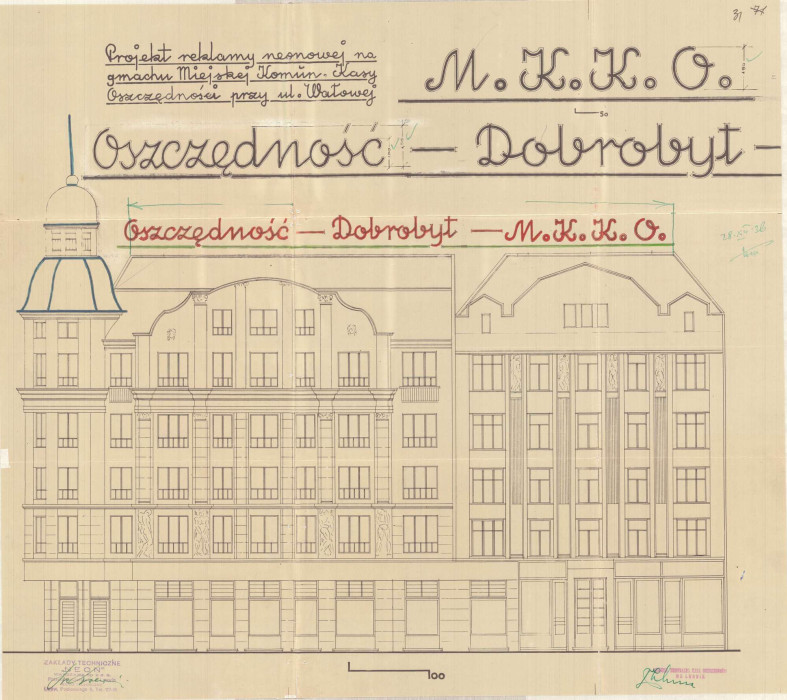 31
Projekt reklamy neonowej na
gmachu Miejskiej Komun. Kasy
Oszczędności przy ul. Wałowej
M. K. K. O.
50
Oszczędność — Dobrobyt —
Oszczędność — Dobrobyt — M. K. K. O.
ZAKŁADY TECHNICZNE
"NEON"
100
WE LWOWIE